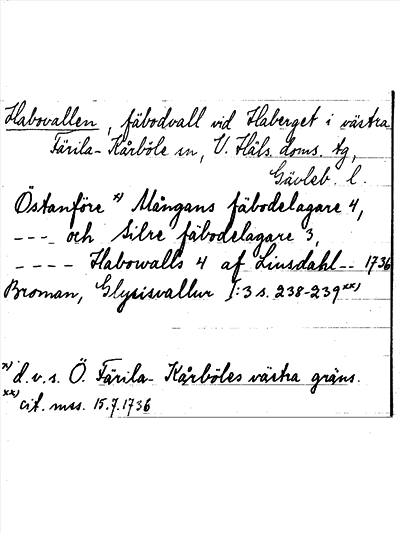 Habovallen, fäbodvall vid Haberget i västra
Färila-Kårböle sn, V. Häls. doms. tg,
Gävleb. l.
Östanföre x) Mångans fäbodelagare 4,
--- och Silre fäbodelagare 3,
---- Habowalls 4 af Liusdahl-- 1736
Broman, Glysisvallur I:3 s. 238-239 xx)
x) d.v.s. Ö. Färila-Kårböles västra gräns.
xx) cit. mss. 15.7.1736